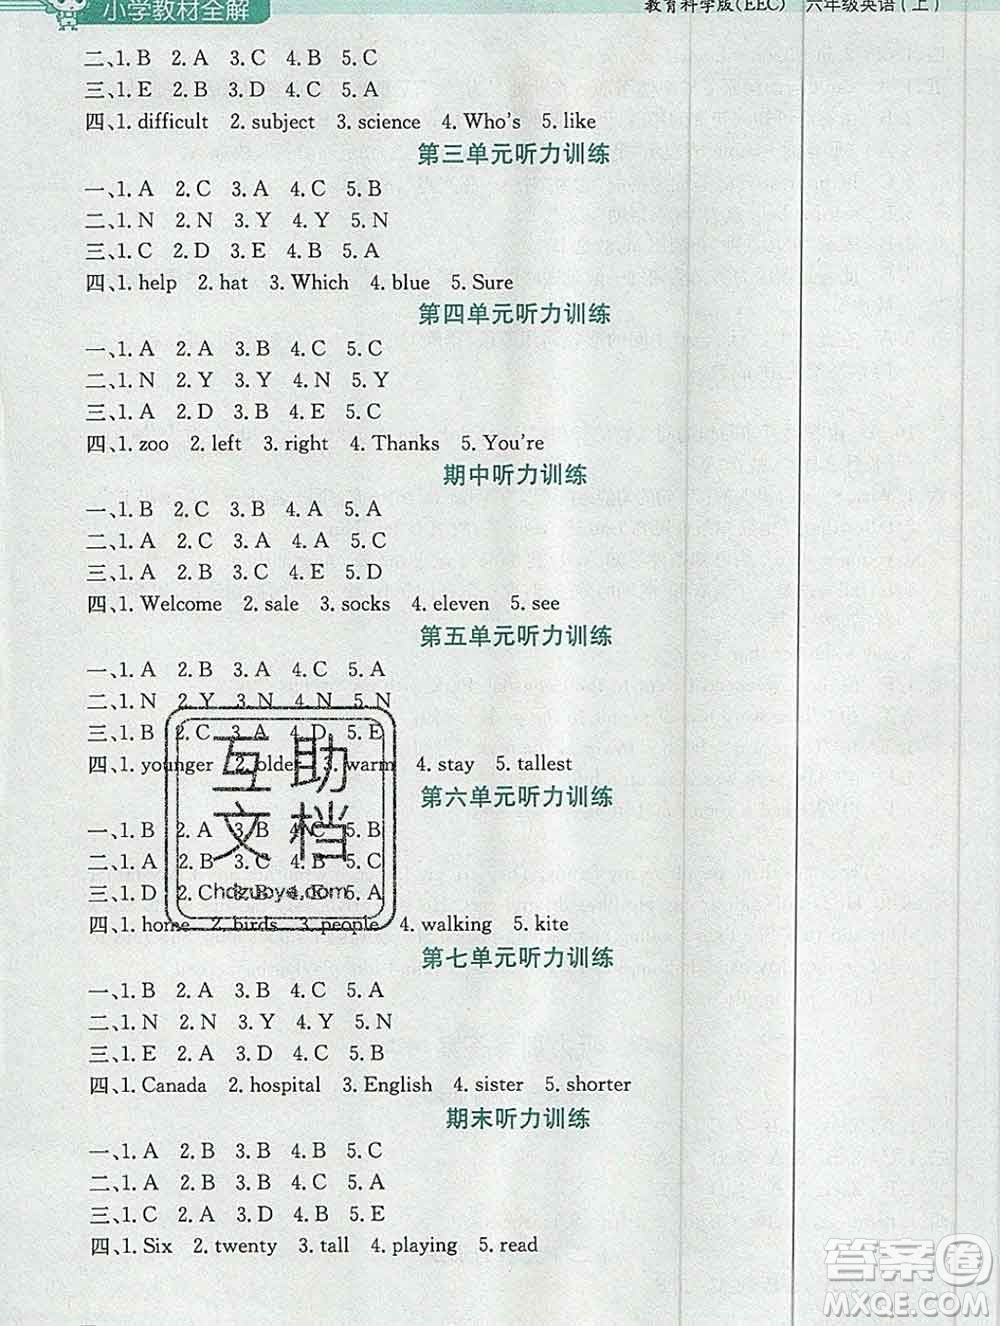 小学教材全解 教育科学版(EEC) 六年级英语(上)
二、1. B 2. A 3. C 4. B 5. C
三、1. E 2. B 3. D 4. C 5. A
四、1. difficult 2. subject 3. science 4. Who's 5. like
第三单元听力训练
一、1. A 2. C 3. A 4. C 5. B
二、1. N 2. N 3. Y 4. Y 5. N
三、1. C 2. D 3. E 4. B 5. A
四、1. help 2. hat 3. Which 4. blue 5. Sure
第四单元听力训练
一、1. A 2. A 3. B 4. C 5. C
二、1. N 2. Y 3. Y 4. N 5. Y
三、1. A 2. D 3. B 4. E 5. C
四、1. zoo 2. left 3. right 4. Thanks 5. You're
期中听力训练
一、1. B 2. C 3. B 4. A 5. A
二、1. A 2. C 3. A 4. A 5. C
三、1. B 2. A 3. C 4. E 5. D
四、1. Welcome 2. sale 3. socks 4. eleven 5. see
第五单元听力训练
一、1. A 2. B 3. A 4. B 5. A
二、1. N 2. Y 3. N 4. N 5. N
三、1. B 2. C 3. A 4. D 5. E
四、1. younger 2. older 3. warm 4. stay 5. tallest
第六单元听力训练
一、1. B 2. A 3. B 4. C 5. B
二、1. A 2. B 3. C 4. B 5. A
三、1. D 2. C 3. B 4. E 5. A
四、1. home 2. birds 3. people 4. walking 5. kite
第七单元听力训练
一、1. B 2. A 3. B 4. C 5. A
二、1. N 2. N 3. Y 4. Y 5. N
三、1. E 2. A 3. D 4. C 5. B
四、1. Canada 2. hospital 3. English 4. sister 5. shorter
期末听力训练
一、1. A 2. B 3. B 4. B 5. C
二、1. A 2. B 3. B 4. A 5. C
三、1. C 2. A 3. D 4. B 5. E
四、1. Six 2. twenty 3. tall 4. playing 5. read
互助
文档
chdzuoye.com
答案圈
MXQE.COM